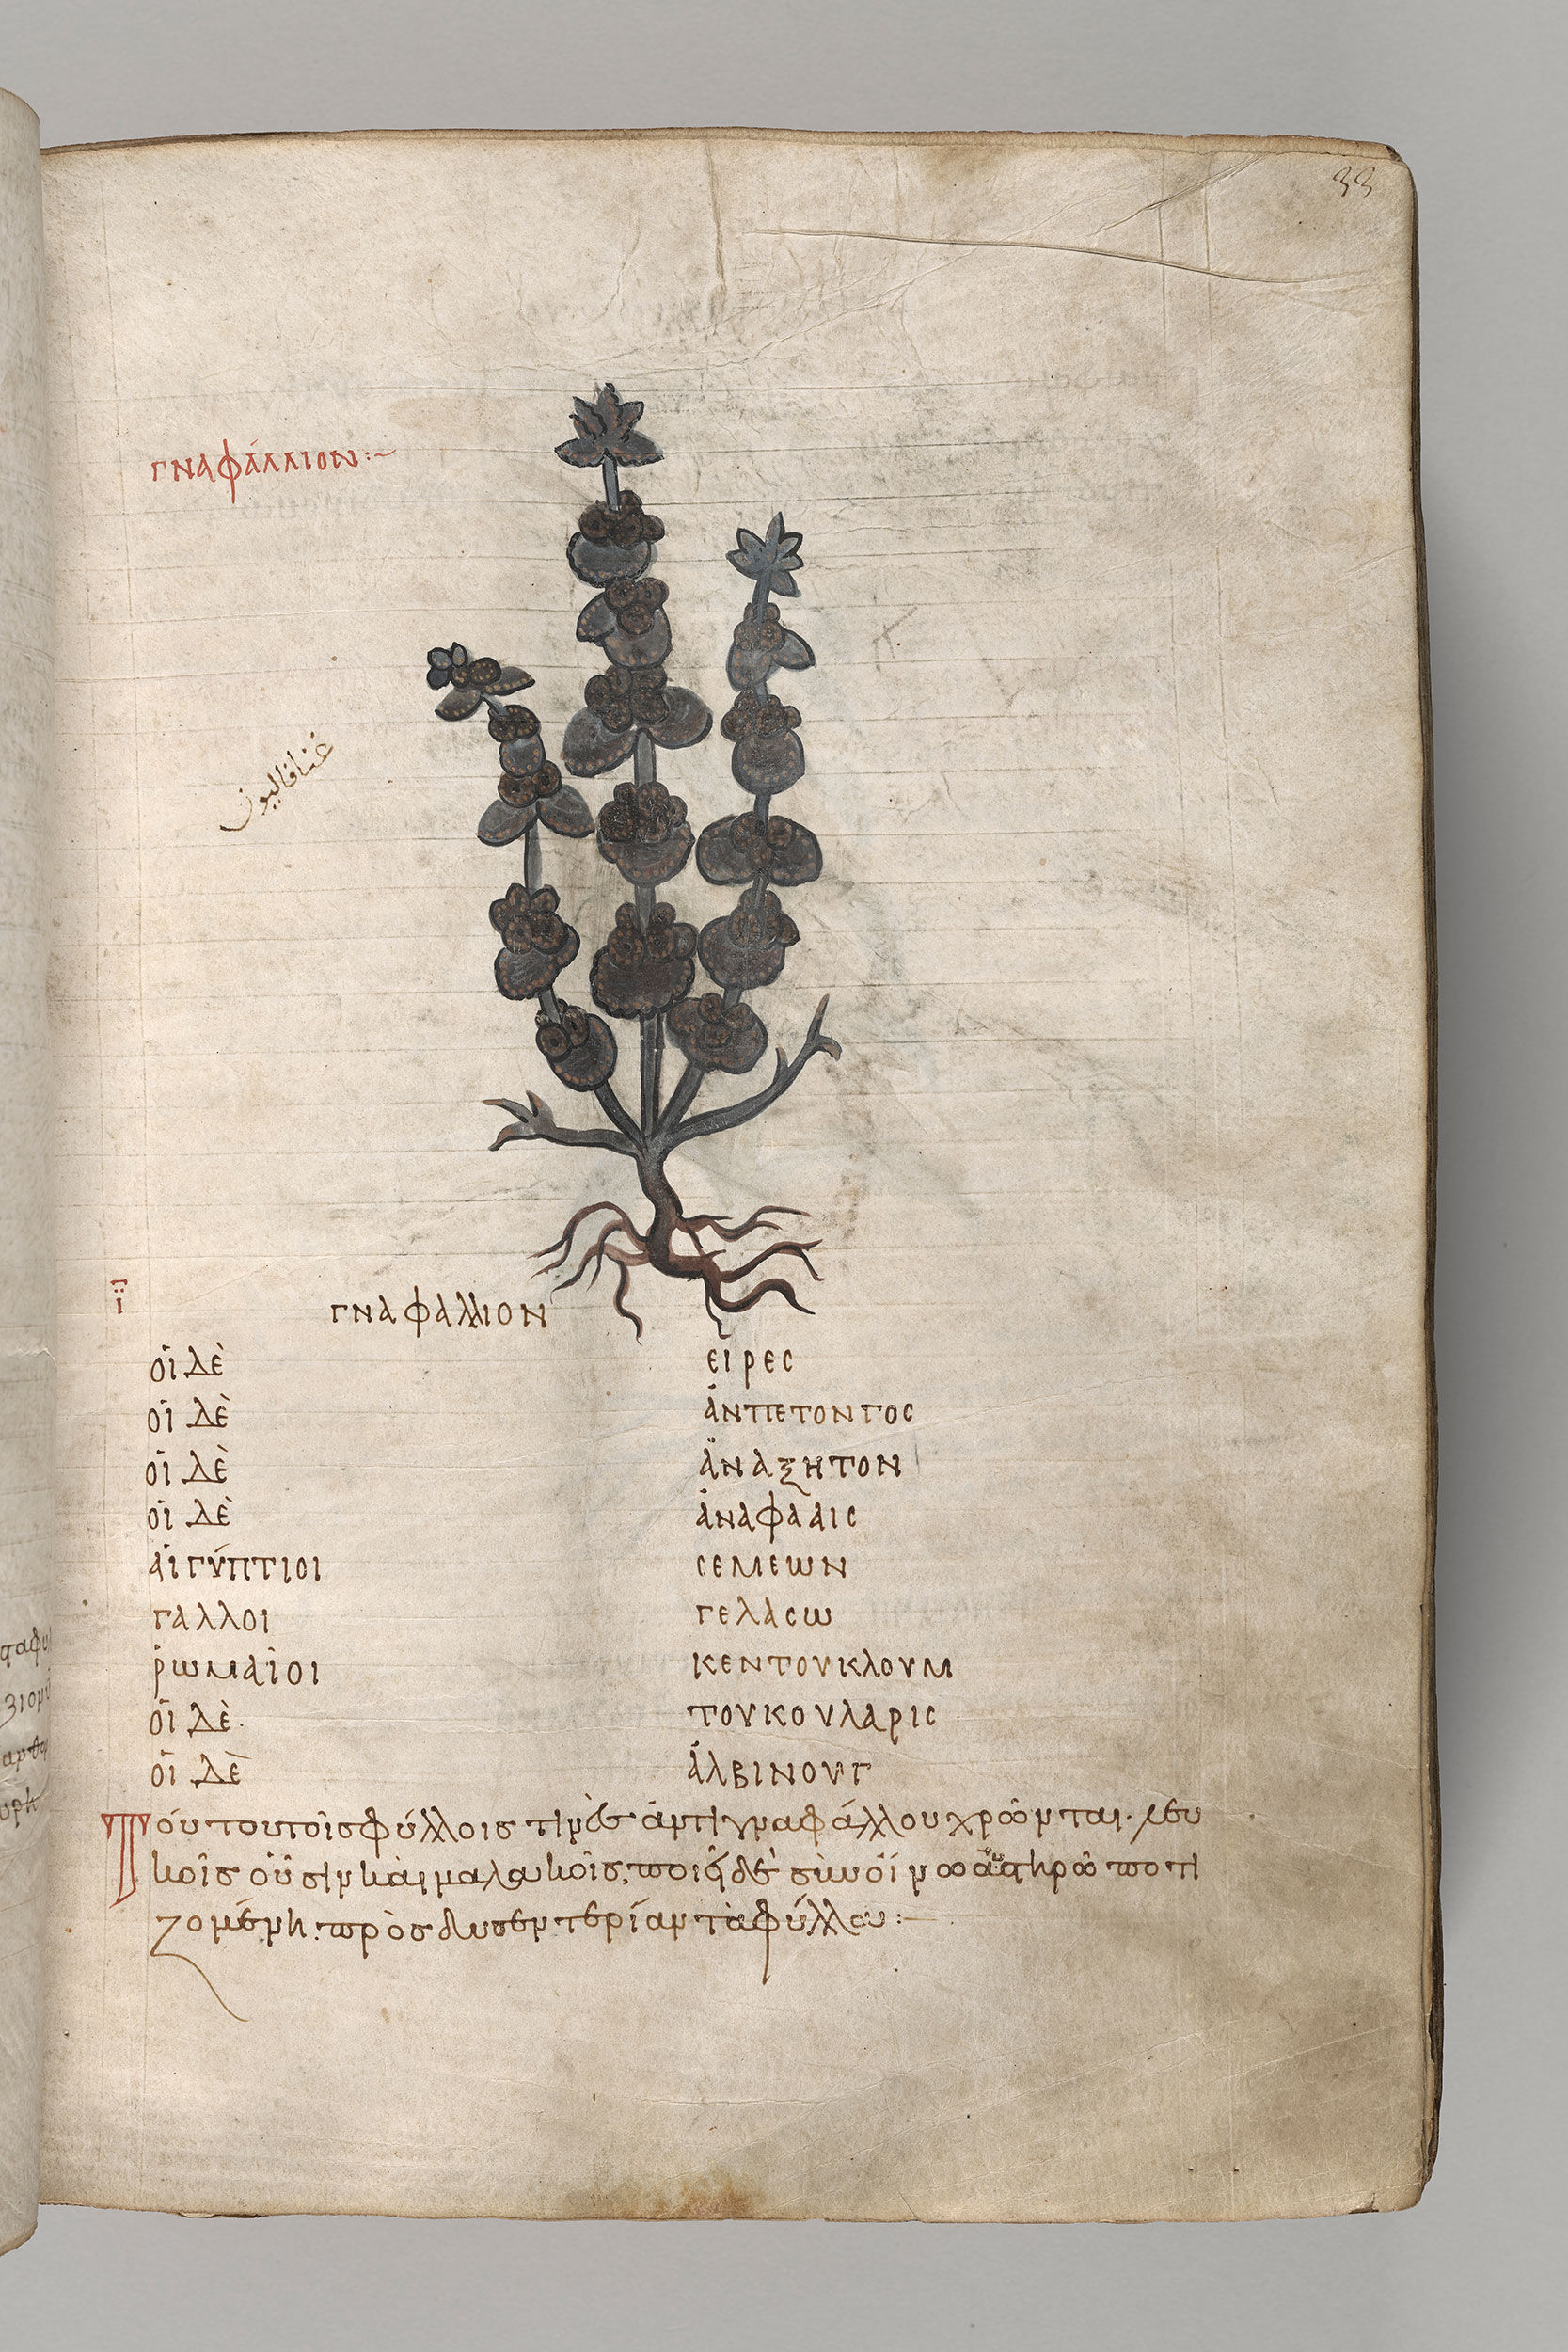 33
γναφάλλιον:~
غنافاليون
ῑ
γναφάλλιον
οἱ δὲ ειρες
οἱ δὲ ἀνπετονγος
οἱ δὲ ἀναξητον
οἱ δὲ ἀναφαλις
αἰγύπτιοι σεμεων
γαλλοι γελασω
ῥωμαῖοι κεντουκλουμ
οἱ δὲ τουκουλαρις
οἱ δὲ ἀλβινουγ
Τούτου τοῖς φύλλοις τινὲς ἀντὶ γναφάλλου χρῶνται· λευ
κοῖς οὖσιν καὶ μαλακοῖς, ποιεῖ δὲ σὺν οἴνω αὐστηρῶ ποτι
ζομένη· πρὸς δυσεντερίαν τὰ φύλλα:~